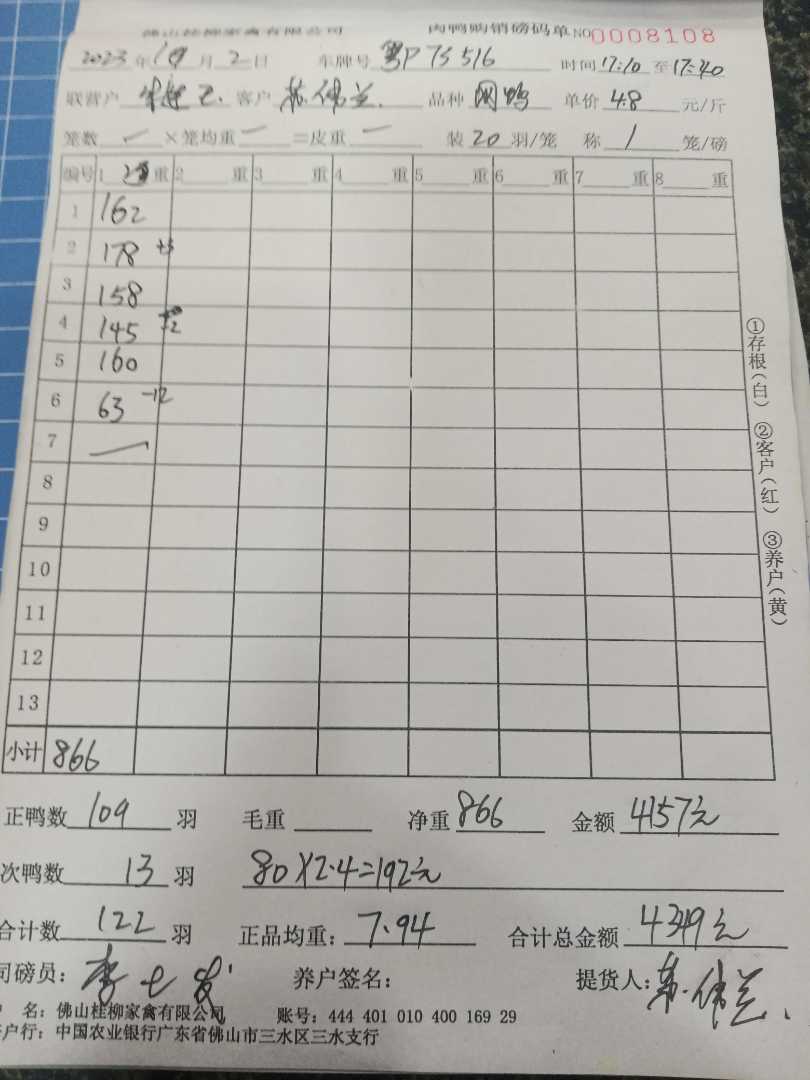 佛山桂柳家禽有限公司 肉鸭购销磅码单 NO 0008108
2023年10月2日 车牌号 粤P7S516 时间 17:10 至 17:40
联营户 客户 苏伟兰 品种 网鸭 单价 4.8 元/斤
笼数 — ×笼均重 — =皮重 — 装 20 羽/笼 称 1 笼/磅
编号 1 重 2 重 3 重 4 重 5 重 6 重 7 重 8 重
1 162
2 178 +3
3 158
4 145 +2
5 160
6 63 -12
7 —
8
9
10
11
12
13
小计 866
正鸭数 109 羽 毛重 净重 866 金额 4157元
次鸭数 13 羽 80×2.4=192元
合计数 122 羽 正品均重: 7.94 合计总金额 4349元
司磅员: 李 养户签名: 提货人: 苏伟兰
户 名: 佛山桂柳家禽有限公司 账号: 444 401 010 400 169 29
开户行: 中国农业银行广东省佛山市三水区三水支行
①存根(白) ②客户(红) ③养户(黄)